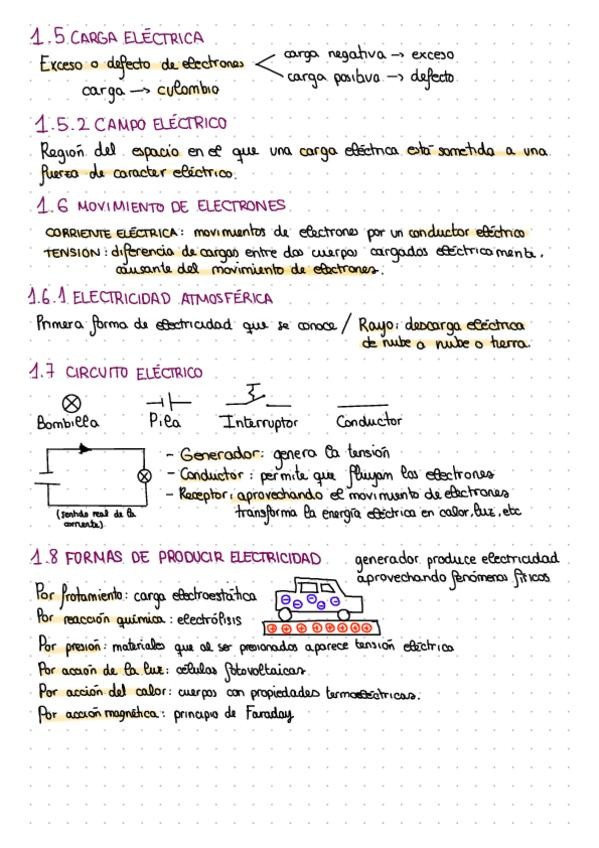 1.5 CARGA ELÉCTRICA
Exceso o defecto de electrones
carga negativa → exceso
carga positiva → defecto
carga → culombio
1.5.2 CAMPO ELÉCTRICO
Región del espacio en el que una carga eléctrica está sometida a una
fuerza de caracter eléctrico.
1.6 MOVIMIENTO DE ELECTRONES
CORRIENTE ELÉCTRICA: movimientos de electrones por un conductor eléctrico
TENSION: diferencia de cargas entre dos cuerpos cargados eléctricamente,
causante del movimiento de electrones.
1.6.1 ELECTRICIDAD ATMOSFÉRICA
Primera forma de electricidad que se conoce / Rayo: descarga eléctrica
de nube a nube o tierra.
1.7 CIRCUITO ELÉCTRICO
Bombilla Pila Interruptor Conductor
- Generador: genera la tensión
- Conductor: permite que fluyan los electrones
- Receptor: aprovechando el movimiento de electrones
transforma la energía eléctrica en calor, luz, etc
(sentido real de la
corriente)
1.8 FORMAS DE PRODUCIR ELECTRICIDAD
generador produce electricidad
aprovechando fenómenos físicos
Por frotamiento: carga electroestática
Por reacción química: electrólisis
Por presión: materiales que al ser presionados aparece tensión eléctrica
Por acción de la luz: células fotovoltaicas
Por acción del calor: cuerpos con propiedades termoeléctricas.
Por acción magnética: principio de Faraday